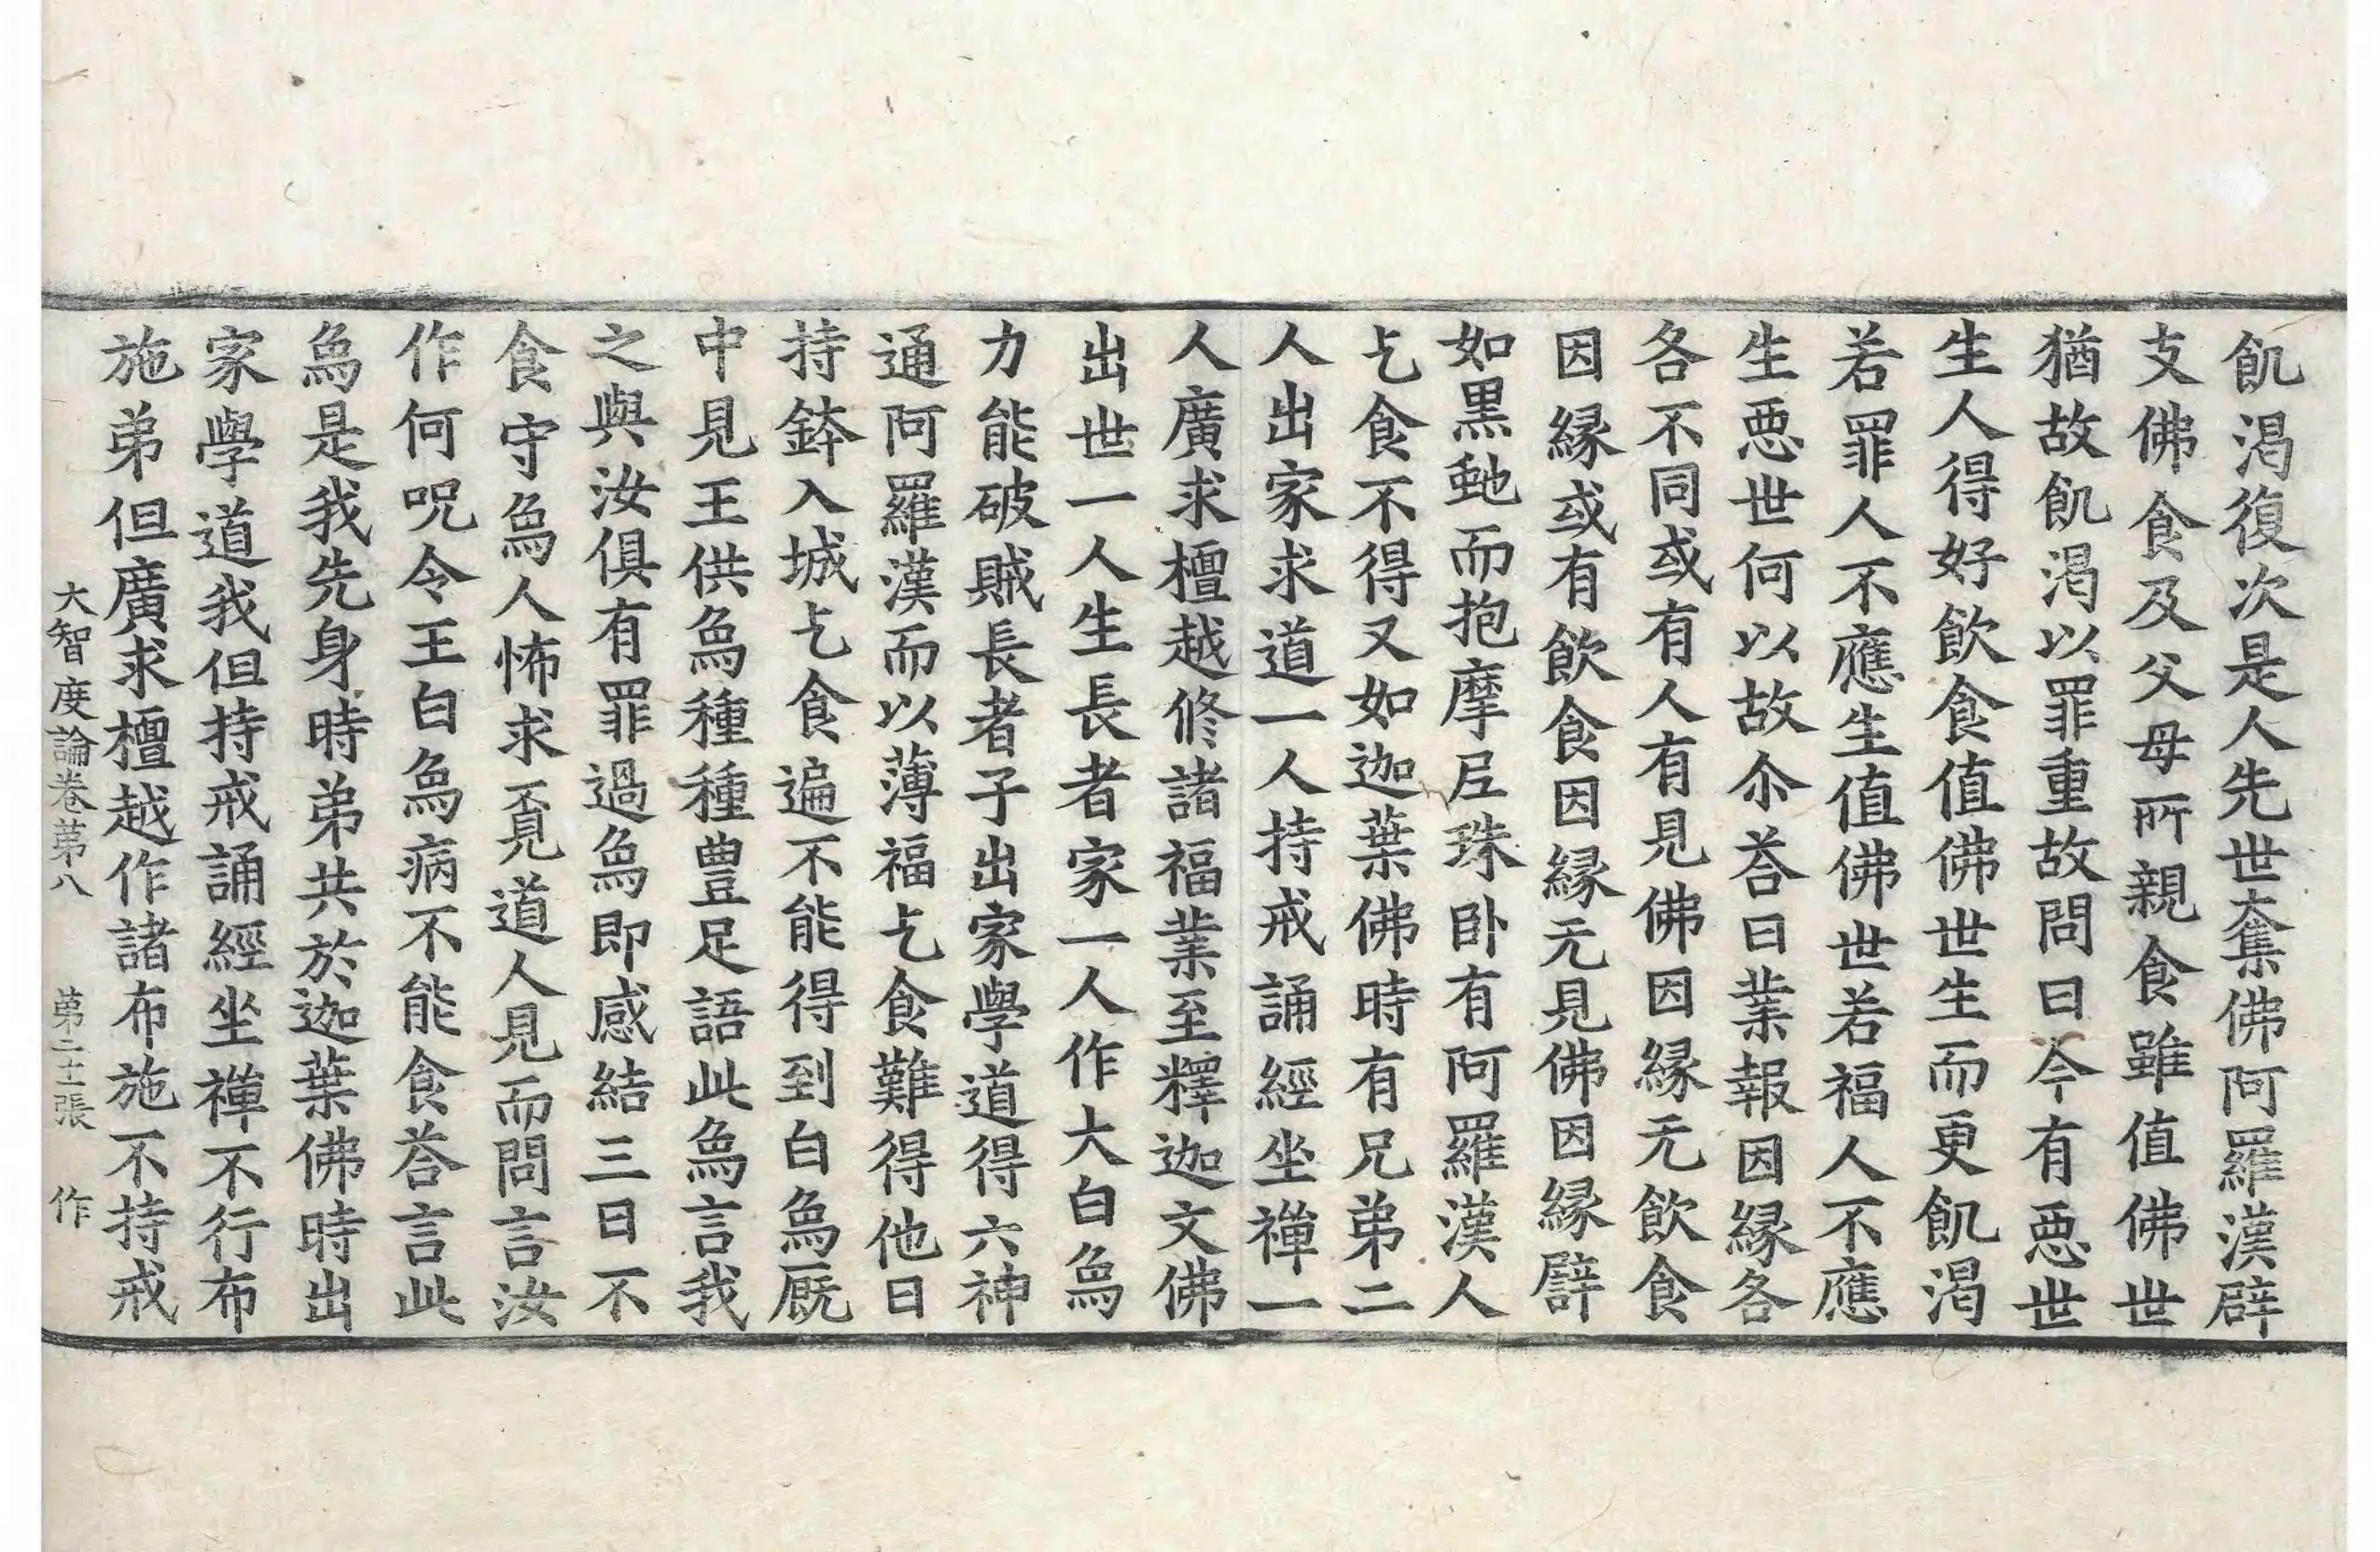 飢渴復次是人先世奪佛阿羅漢辟
支佛食及父母所親食雖值佛世
猶故飢渴以罪重故問曰今有惡世
生人得好飲食值佛世生而更飢渴
若罪人不應生值佛世若福人不應
生惡世何以故尒荅曰業報因緣各
各不同或有人有見佛因緣无飲食
因緣或有飲食因緣无見佛因緣譬
如黒虵而抱摩尼珠卧有阿羅漢人
乞食不得又如迦葉佛時有兄弟二
人出家求道一人持戒誦經坐禪一
人廣求檀越修諸福業至釋迦文佛
出世一人生長者家一人作大白爲
力能破賊長者子出家學道得六神
通阿羅漢而以薄福乞食難得他日
持鉢入城乞食遍不能得到白爲厩
中見王供爲種種豊足語此爲言我
之與汝俱有罪過爲即感結三日不
食守爲人怖求覔道人見而問言汝
作何呪令王白爲病不能食荅言此
爲是我先身時弟共於迦葉佛時出
家學道我但持戒誦經坐禪不行布
施弟但廣求檀越作諸布施不持戒
大智度論卷苐八 苐二十二張 作